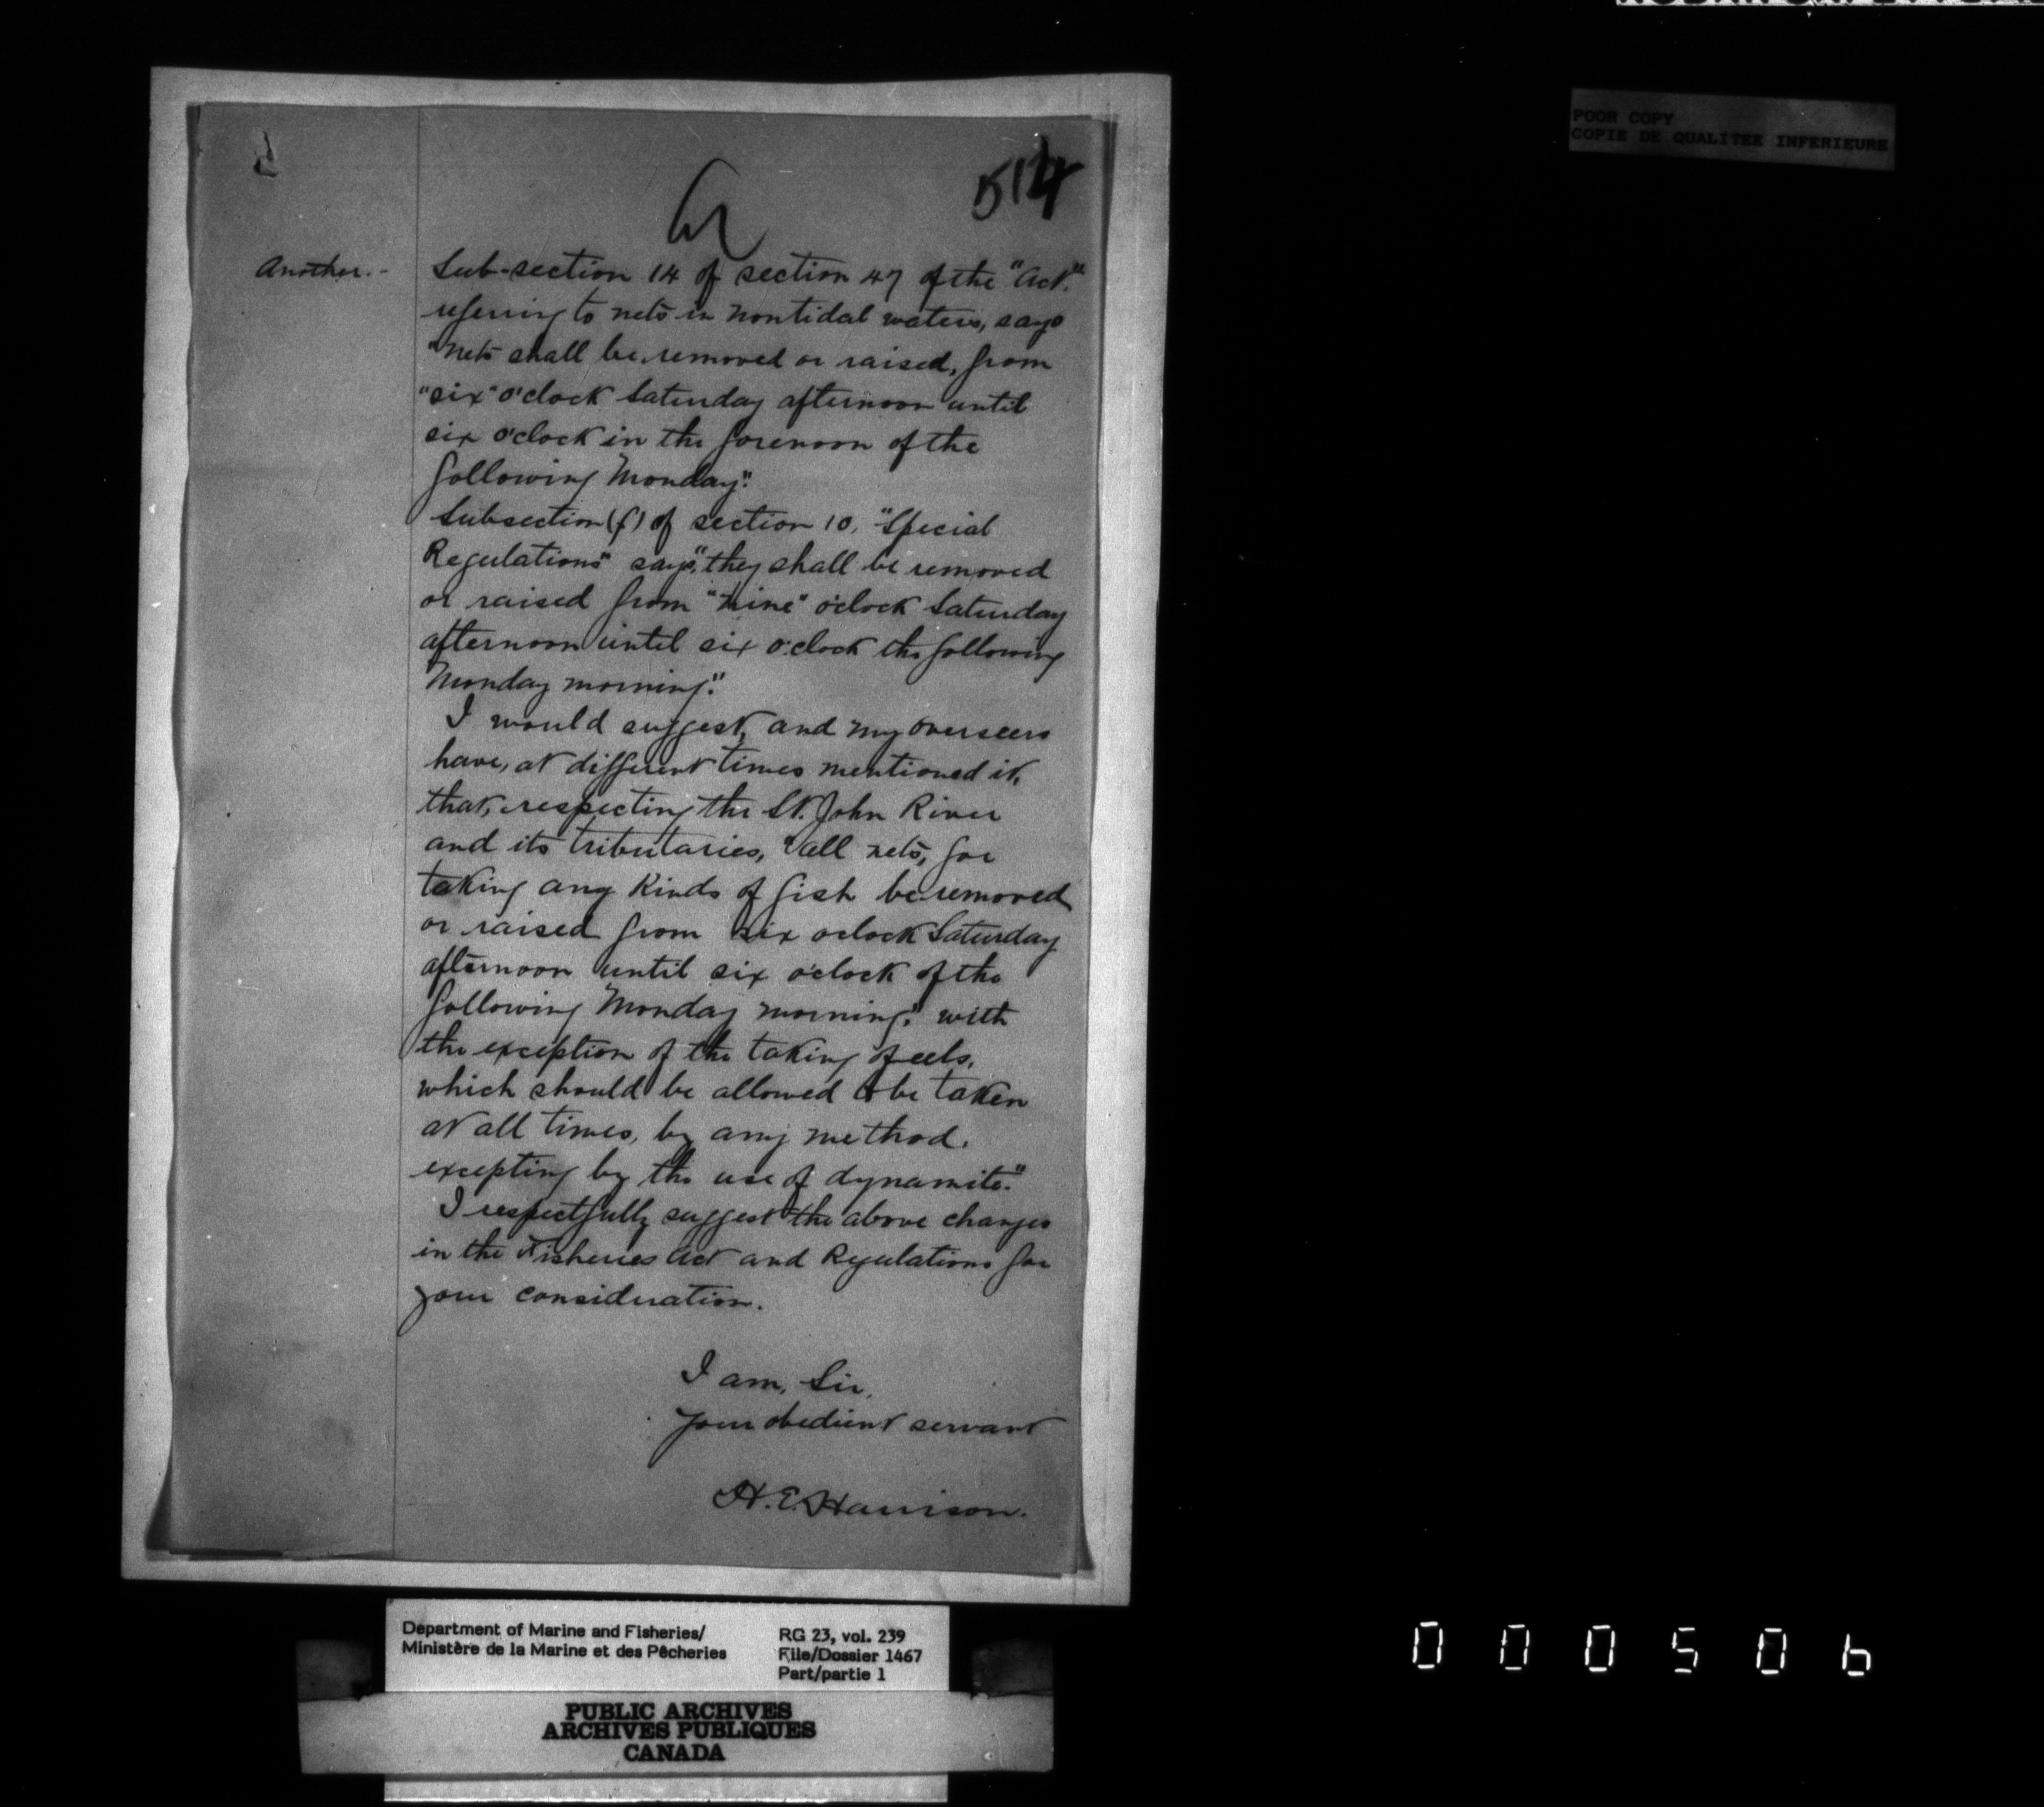 POOR COPY
COPIE DE QUALITEE INFERIEURE
514
Another.-
Sub-section 14 of section 47 of the "Act."
referring to nets in nontidal waters, says
"Nets shall be removed or raised, from
"six" o'clock Saturday afternoon until
six o'clock in the forenoon of the
following Monday."
Subsection (f) of section 10, "Special
Regulations" says, "they shall be removed
or raised from "nine" o'clock Saturday
afternoon until six o'clock the following
Monday morning."
I would suggest, and my overseers
have, at different times mentioned it,
that, respecting the St. John River
and its tributaries, "all nets, for
taking any kinds of fish be removed
or raised from six oclock Saturday
afternoon until six o'clock of the
following Monday morning." with
the exception of the taking of eels,
which should be allowed to be taken
at all times, by any method.
excepting by the use of dynamite."
I respectfully suggest the above changes
in the Fisheries Act and Regulations for
your consideration.
I am, Sir,
Your obedient servant
H. E. Harrison.
Department of Marine and Fisheries/
Ministère de la Marine et des Pêcheries
RG 23, vol. 239
File/Dossier 1467
Part/partie 1
PUBLIC ARCHIVES
ARCHIVES PUBLIQUES
CANADA
000506